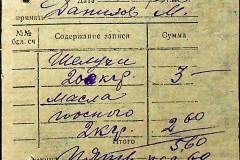 Дата
принято Данилов М.
№№ бдл. сч Содержание записи Сумма
Шелухи
200 кгр. 3 –
Масла
посного
2 кгр. 2 60
Итого 5 60
Пять